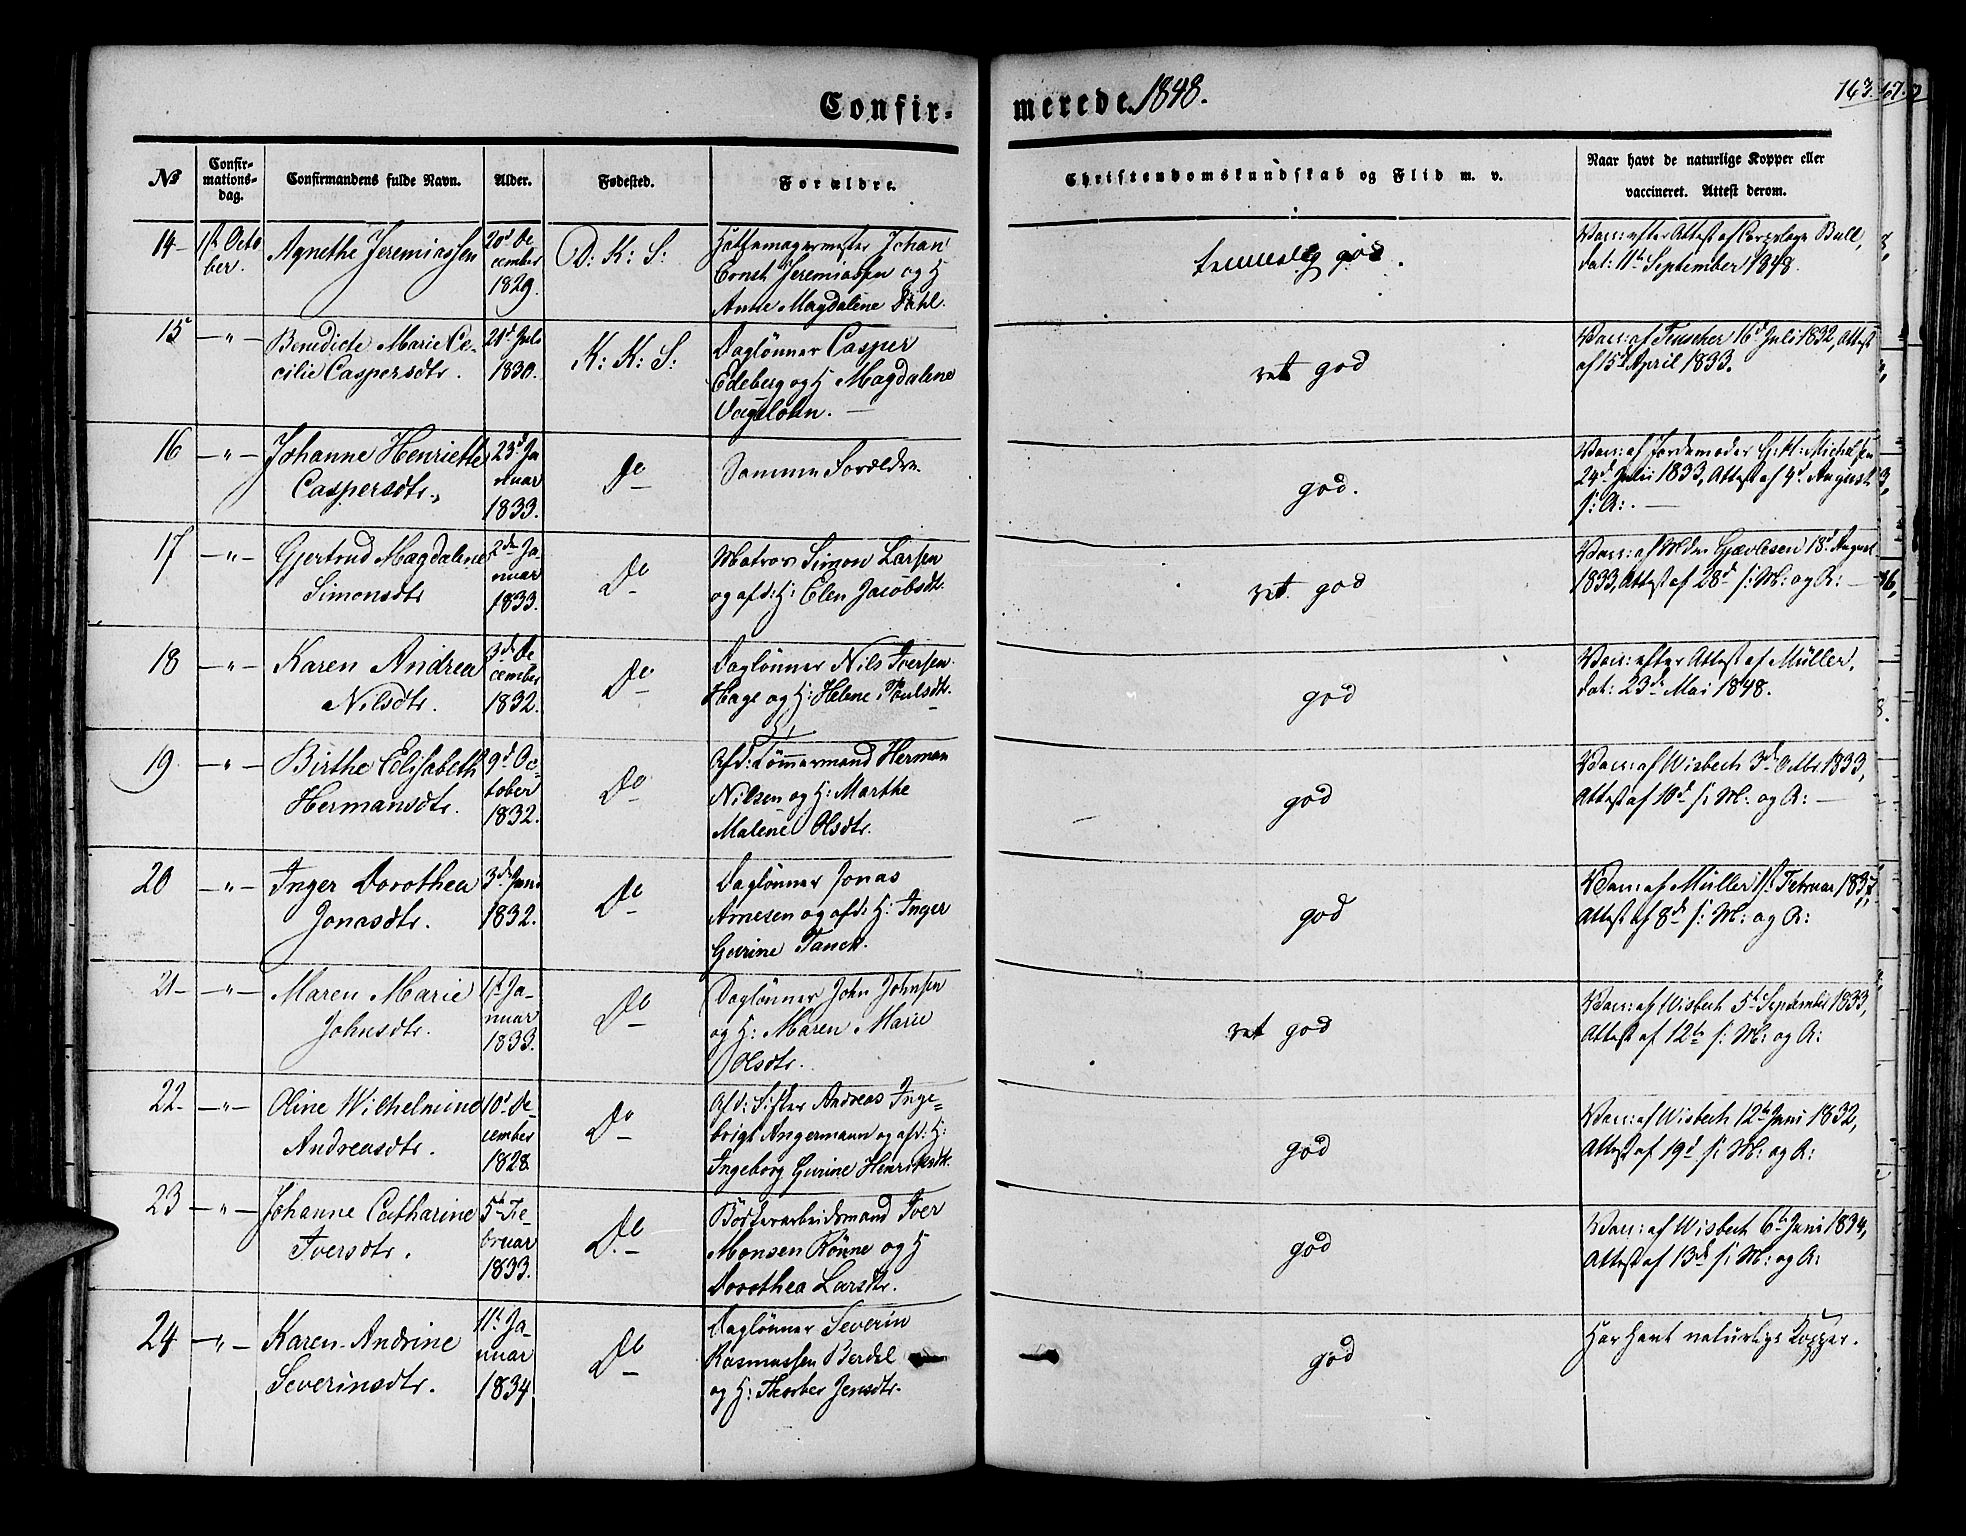 Confir-
merede. 1848.
163.
No
Confir-
mations-
dag.
Confirmandens fulde Navn.
Alder.
Fødested.
Forældre.
Christendomskundskab og Flid m. v.
Naar havt de naturlige Kopper eller
vaccineret. Attest derom.
14- 1ste Octo
ber.
Agnethe Jeremiassen
20d De
cember
1829.
D: K: S:
Hattemagermester Johan
Ernst Jeremiassen og H
Anne Magdalene Dahl.
temmelig god.
Vacc: efter Attest af Corpslæge Bull,
dat: 11te September 1848.
15 -"- Benedicte Marie Ce-
cilie Caspersdtr.
21d Juli
1830.
K: K: S:
Daglønner Casper
Edeberg og H Magdalene
ret god
Vacc: af Teuscher 16d Juli 1832, Attest
af 15d April 1833.
16 -"- Johanne Henriette
Caspersdtr.
23d Ja
nuar
1833.
Do
Samme Forældre.
god.
Vacc: af Jordemoder G: M: Michelsen
24d Julii 1833, Attest af 4d August
s: A: -
17 -"- Gjertrud Magdalene
Simonsdtr
2den Ja-
nuar
1833.
Do
Matros Simon Larsen
og afd: H: Elen Jacobsdtr.
ret god
Vacc: af Mdm Gjævlesen 18d August
1833, Attest af 28d s: M: og A: -
18 -"- Karen Andrea
Nilsdtr.
3die De
cember
1832.
Do
Daglønner Nils Iversen
Hage og H: Helene Poulsdtr.
god
Vacc: efter Attest af Müller,
dat: 23de Mai 1848.
19 -"- Birthe Elisabeth
Hermansdtr.
9d Oc-
tober
1832.
Do
Afd: Tømmermand Herman
Nilsen og H: Marthe
Malene Olsdtr.
god
Vacc: af Wisbech 3die Octbr. 1833,
Attest af 10d s: M: og A: -
20 -"- Inger Dorothea
Jonasdtr.
3die Juni
1832.
Do
Daglønner Jonas
Arnesen og afd: H: Inger
Gurine Tanck.
god
Vacc: af Müller 1ste Februar 183
Attest af 8de s: M: og A:
21- -"- Maren Marie
Johnsdtr.
1ste Ja-
nuar
1833.
Do
Daglønner John Johnsen
og H: Maren Marie
Olsdtr.
ret god
Vacc: af Wisbech 5te September 1833,
Attest af 12te s: M: og A:
22- -"- Oline Wilhelmine
Andreasdtr.
10d De-
cember
1828
Do
Afd: Sifter Andreas Inge-
brigt Angermann og afd: H:
Ingeborg Gurine Henriksdtr.
god
Vacc: af Wisbech 12te Juni 1832,
Attest af 19d s: M: og A:
23 -"- Johanne Catharine
Iversdtr.
5te Fe-
bruar
1833.
Do
Bødkerarbeidsmand Iver
Monsen Rønne og H
Dorothea Larsdtr.
god
Vacc: af Wisbech 6te Juni 1834,
Attest af 13de s: M: og A:
24 -"- Karen Andrine
Severinsdtr.
11te Ja-
nuar
1834
Do
Daglønner Severin
Rasmussen Berdel
og H: Thorber Jensdtr.
god
Har havt naturlige Kopper.